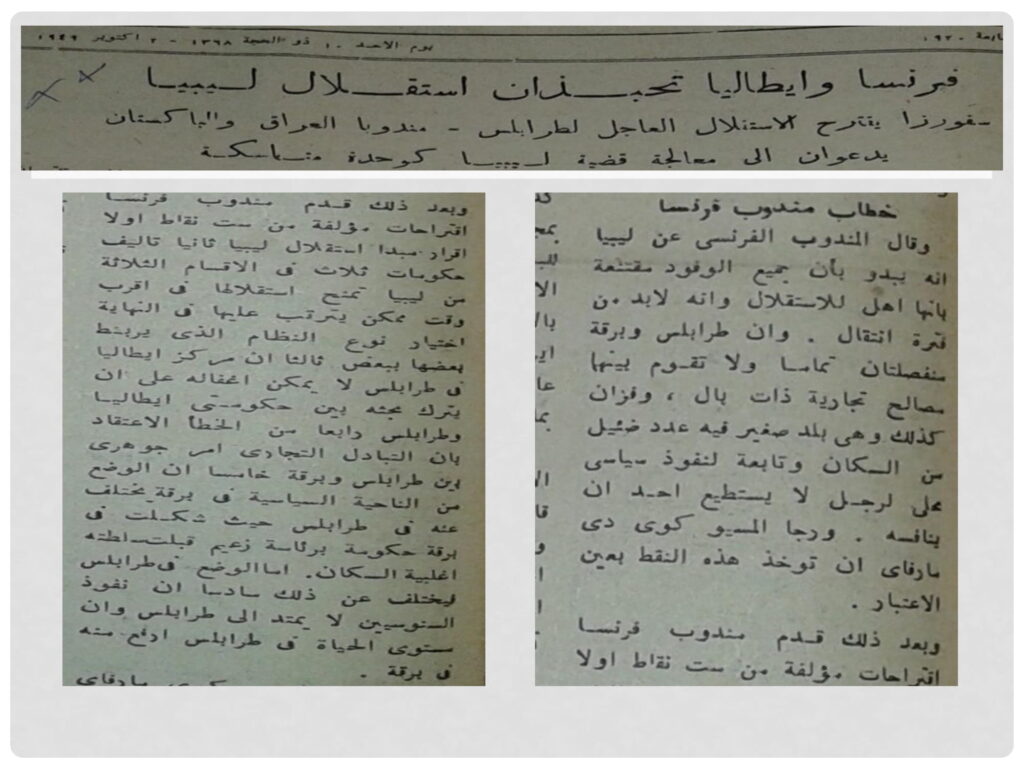 يوم الاحد ١٠ ذو الحجة ١٣٦٨ - ٢ اكتوبر ١٩٤٩
فرنسا وايطاليا تحبـــذان استقـــلال لـــيبيـــا
سفورزا يقترح الاستقلال العاجل لطرابلس - مندوبا العراق والباكستان
يدعوان الى معالجة قضية لـــيبيـــا كوحدة متماسكـــة
خطاب مندوب فرنسا
وقال المندوب الفرنسى عن ليبيا
انه يبدو بأن جميع الوفود مقتنعة
بانها اهل للاستقلال وانه لابد من
فترة انتقال . وان طرابلس وبرقة
منفصلتان تماما ولا تقوم بينها
مصالح تجارية ذات بال ، وفزان
كذلك وهى بلد صغير فيه عدد ضئيل
من السكان وتابعة لنفوذ سياسى
محلى لرجل لا يستطيع احد ان
ينافسه . ورجا المسيو كوى دى
مارفاى ان توخذ هذه النقط بعين
الاعتبار .
وبعد ذلك قدم مندوب فرنسا
اقتراحات مؤلفة من ست نقاط اولا
وبعد ذلك قدم مندوب فرنسا
اقتراحات مؤلفة من ست نقاط اولا
اقرار مبدا استقلال ليبيا ثانيا تاليف
حكومات ثلاث فى الاقسام الثلاثة
من ليبيا تمنح استقلالها فى اقرب
وقت ممكن يترتب عليها فى النهاية
اختيار نوع النظام الذى يربط
بعضها ببعض ثالثا ان مركز ايطاليا
فى طرابلس لا يمكن اغفاله على ان
يترك بحثه بين حكومتى ايطاليا
وطرابلس رابعا من الخطأ الاعتقاد
بان التبادل التجارى امر جوهرى
بين طرابلس وبرقة خامسا ان الوضع
من الناحية السياسية فى برقة يختلف
عنه فى طرابلس حيث شكلت فى
برقة حكومة برئاسة زعيم قبلت سلطته
اغلبية السكان. اما الوضع فى طرابلس
ليختلف عن ذلك سادسا ان نفوذ
السنوسيين لا يمتد الى طرابلس وان
مستوى الحياة فى طرابلس ارفع منه
فى برقة .
مارفاى